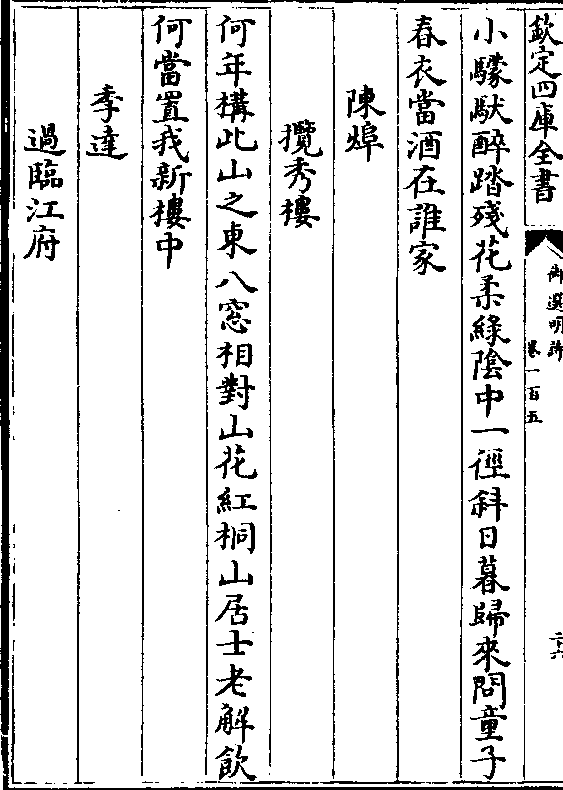 欽定四庫全書
御選明詩
卷一百五
二六
小驟馱醉踏殘花柔綠陰中一徑斜日暮歸來問童子
春衣當酒在誰家
陳埠
攬秀樓
何年構此山之東八窓相對山花紅桐山居士老解飲
何當置我新樓中
季達
過臨江府